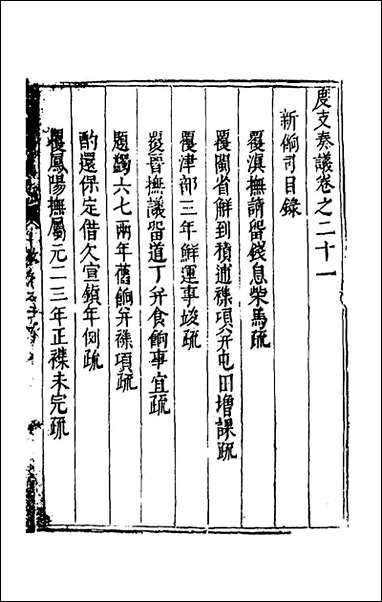 度支奏議卷之二十一
新餉司目錄
覆滇撫請留錢息柴馬疏
覆閩省解到積逋襍項并屯田增課疏
覆津部三年鮮運事竣疏
覆晉撫議留道丁并食餉事宜疏
題蠲六七兩年舊餉并襍項疏
酌還保定借欠宣鎮年例疏
覆鳳陽撫屬元二三年正襍未完疏